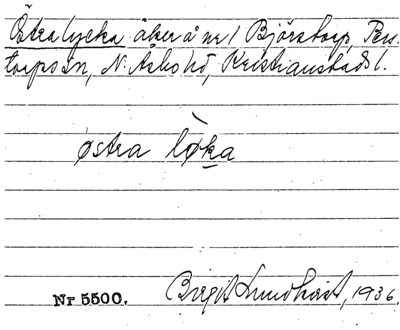 Östra lycka åker å nr 1 Björstorp, Pers-
torps sn, N. Åsbo hd, Kristianstads l.
østra lø̀ka
Nr 5500. Birgit Lundkvist, 1936.